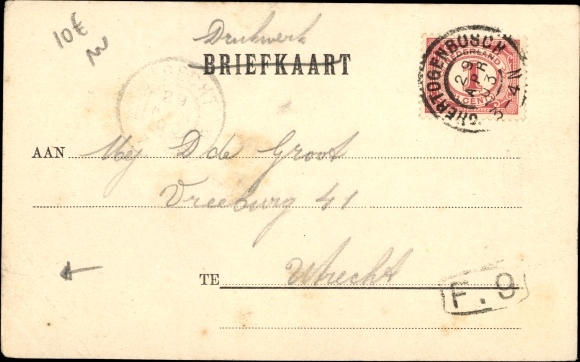 10€
Drukwerk
BRIEFKAART
'SHERTOGENBOSCH
NEDERLAND
1
CENT
AAN Mej D de Groot
Vreeburg 41
TE Utrecht
F. 9